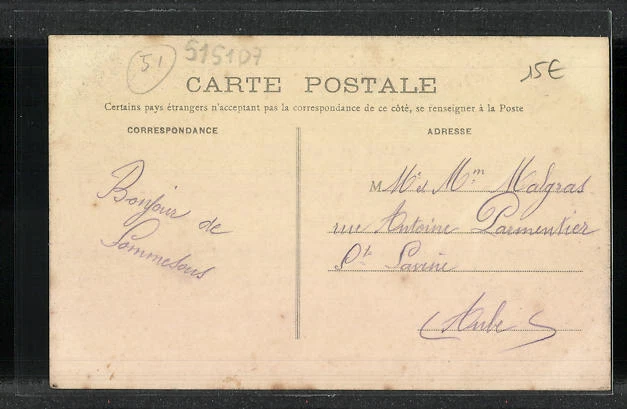 51
515107
15€
CARTE POSTALE
Certains pays étrangers n'acceptant pas la correspondance de ce côté, se renseigner à la Poste
CORRESPONDANCE
ADRESSE
Bonjour de
Sommesous
M Mr et Mm Malgras
rue Antoine Parmentier
Ste Savine
(Aube)